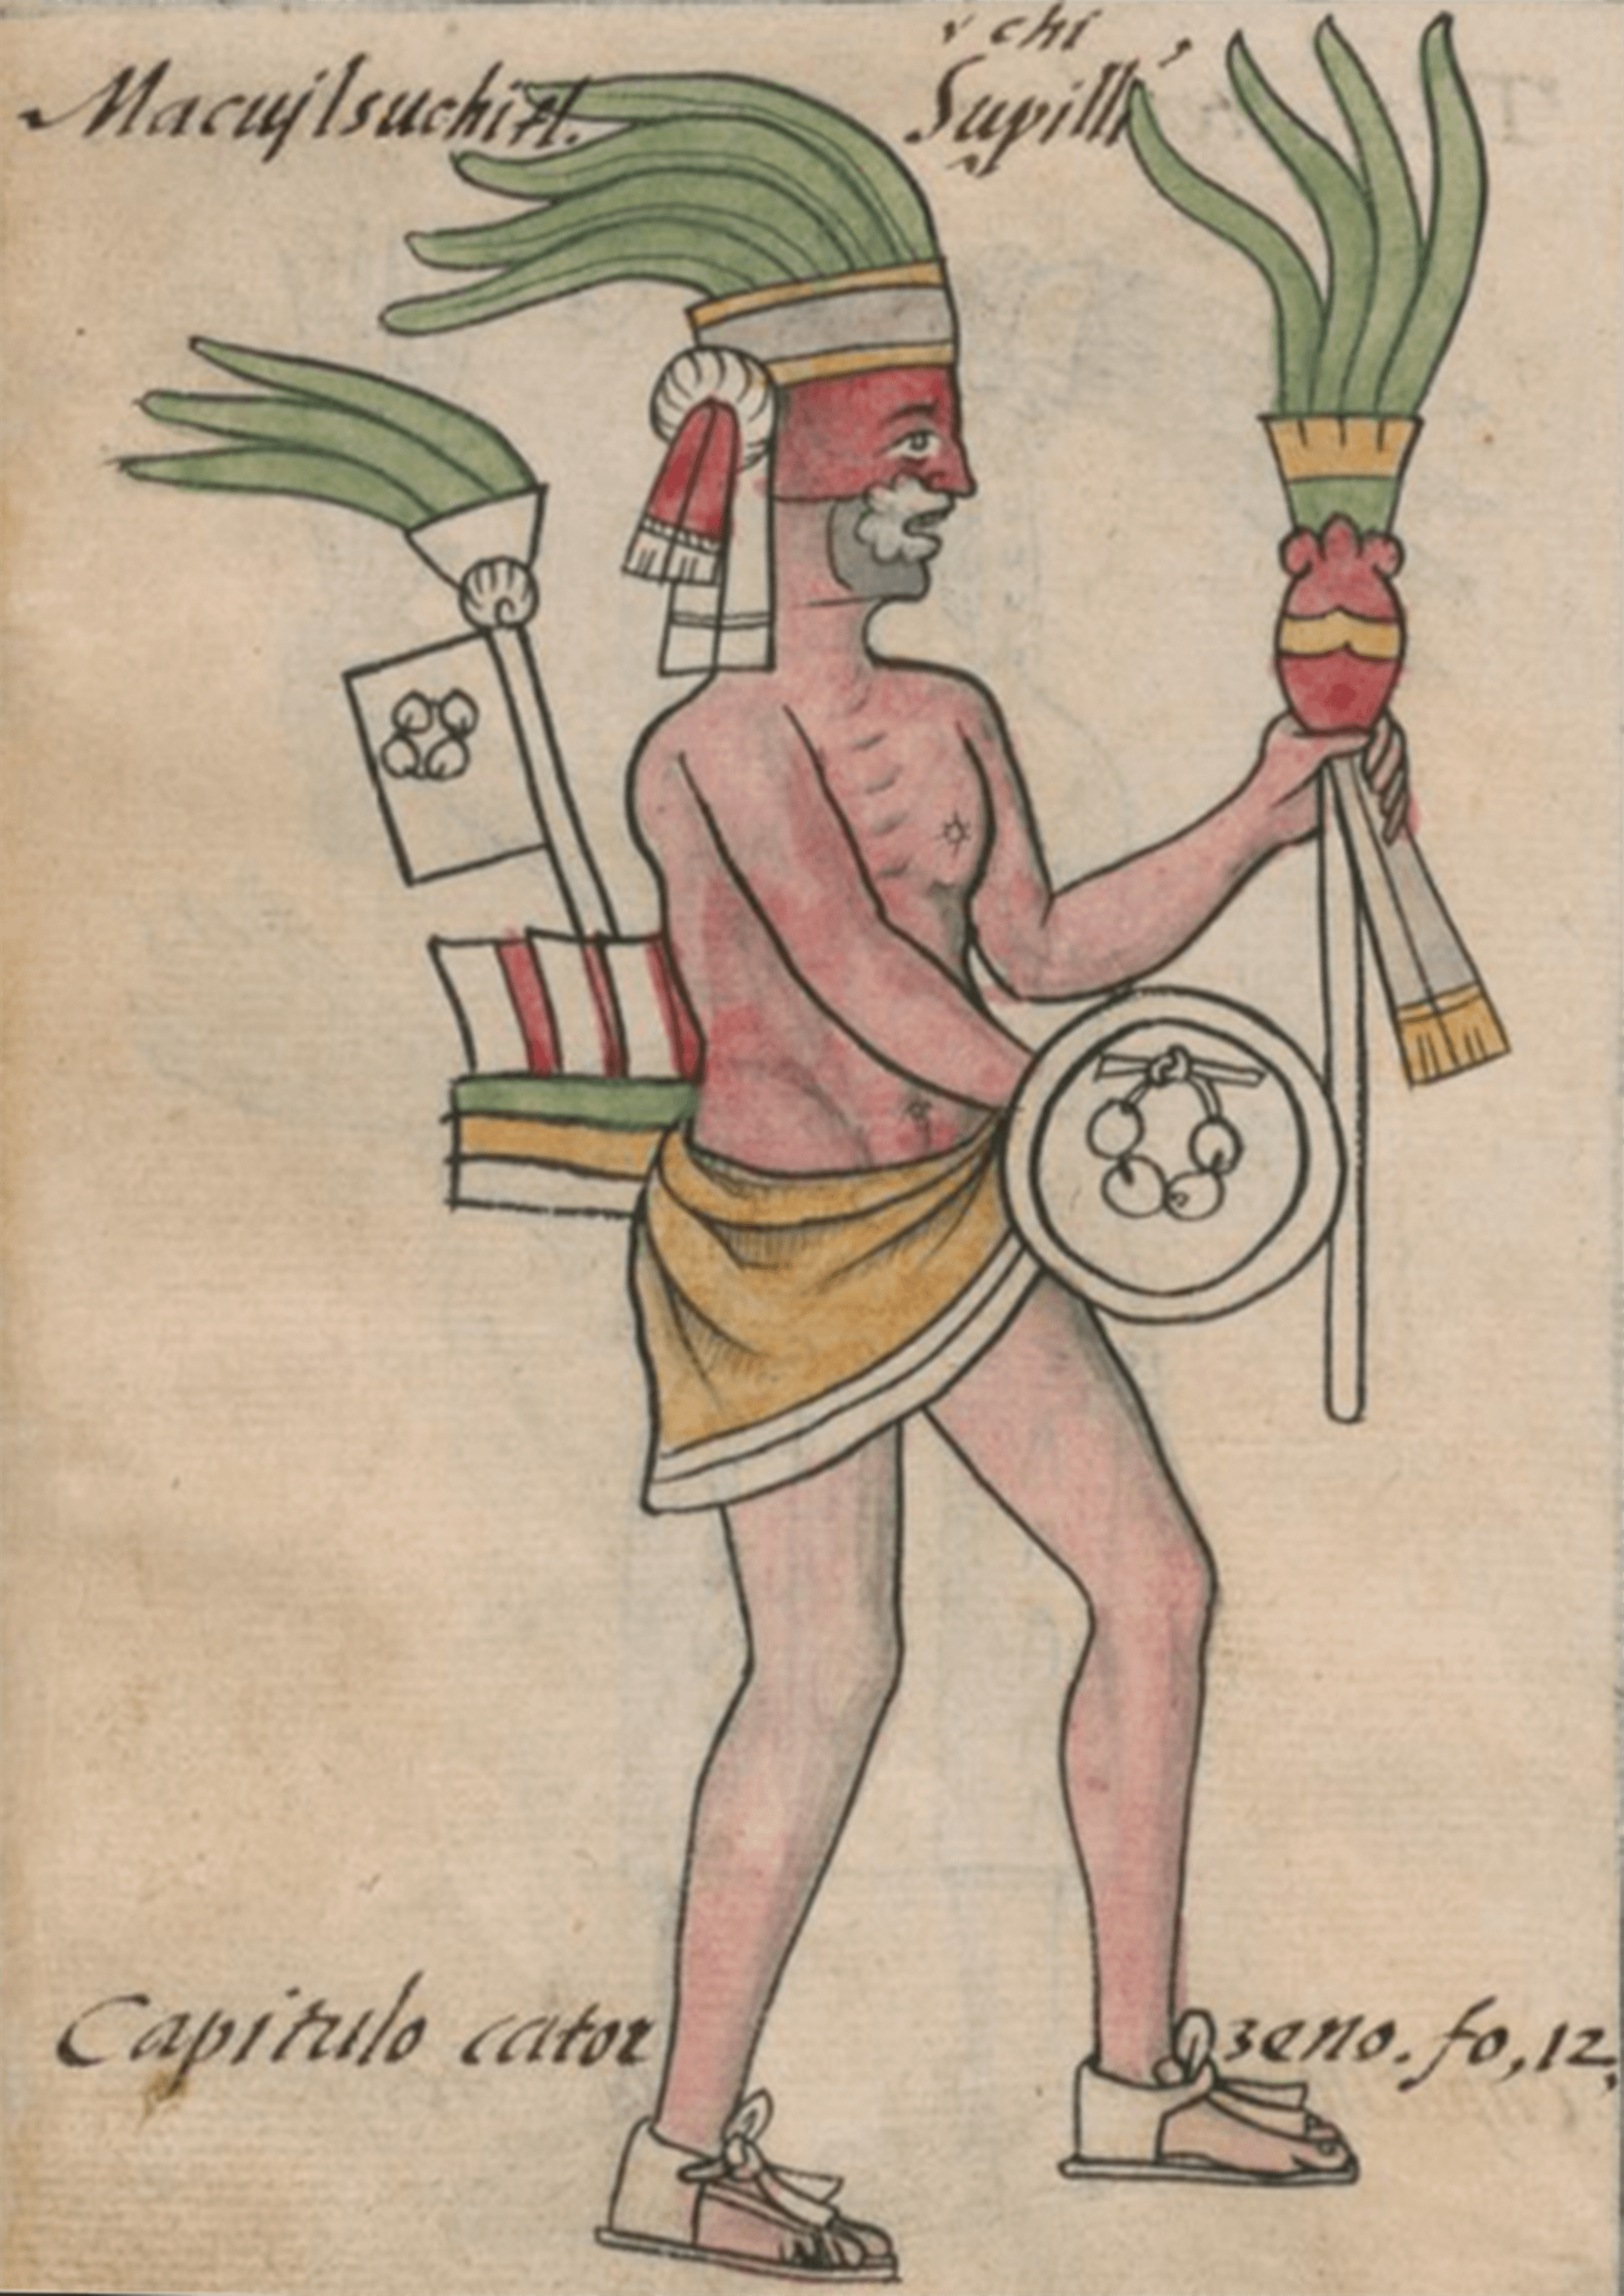 Macujlsuchitl.
chi
Supilli
Capitulo cator zeno. fo, 12.